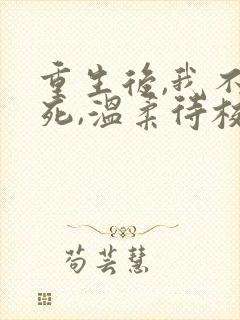 重生後,我不
死,溫柔待校
苟芸慧